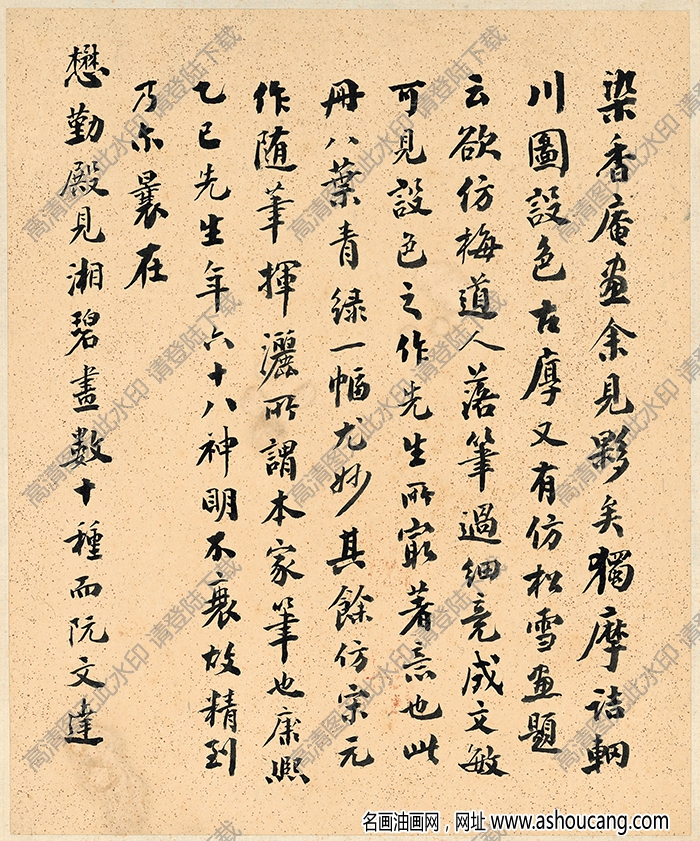 染香庵画余见夥矣獨摩詰輞
川圖設色古厚又有仿松雪画題
云欲仿梅道人落筆過細竟成文敏
可見設色之作先生所最著意也此
冊八葉青绿一幅尤妙其餘仿宋元
作随筆揮灑所謂本家筆也康熙
乙巳先生年六十八神明不衰故精到
乃尓曩在
懋勤殿見湘碧畫數十種而阮文達
高清图登陆下载 此水印 请登陆下载
名画油画网，网址 www.ashoucang.com